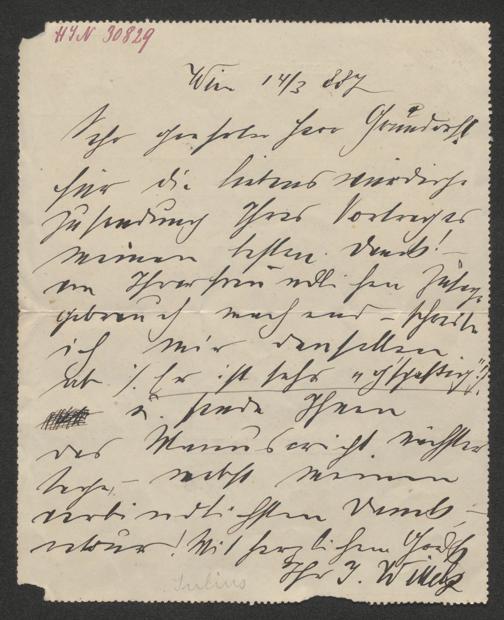 HIN 30829
Wien 14/3 887
Sehr geehrter Herr Gründorf!
für die liebenswürdige
Zusendung Ihres Vortrages
meinen besten Dank! –
von Ihrer freundlichen
gebrauch machend – schreibe
ich mir denselben
ab /: Er ist sehr :/
u. sende Ihnen
das Manuscript nächster
Tage, – nebst meinem
verbindlichsten Dank, –
retour! Mit herzlichem Gruß
Ihr J.
Julius